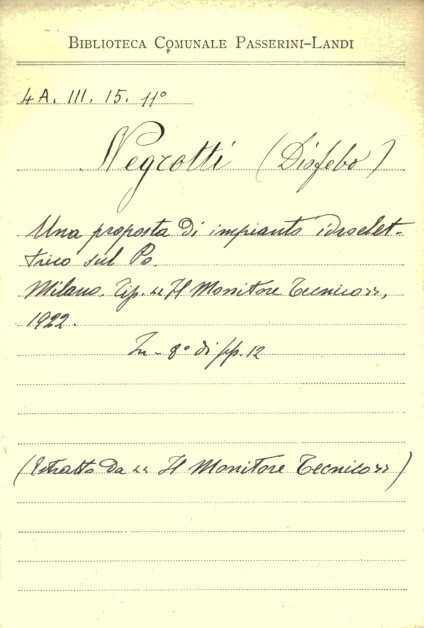 BIBLIOTECA COMUNALE PASSERINI-LANDI
4A. III. 15. 11°
Negrotti (Disfebo)
Una proposta di impianto idroelet-
trico sul Po.
Milano. Tip. "Il Monitore Tecnico",
1922.
In-8° di pp. 12
(Estratto da "Il Monitore Tecnico")